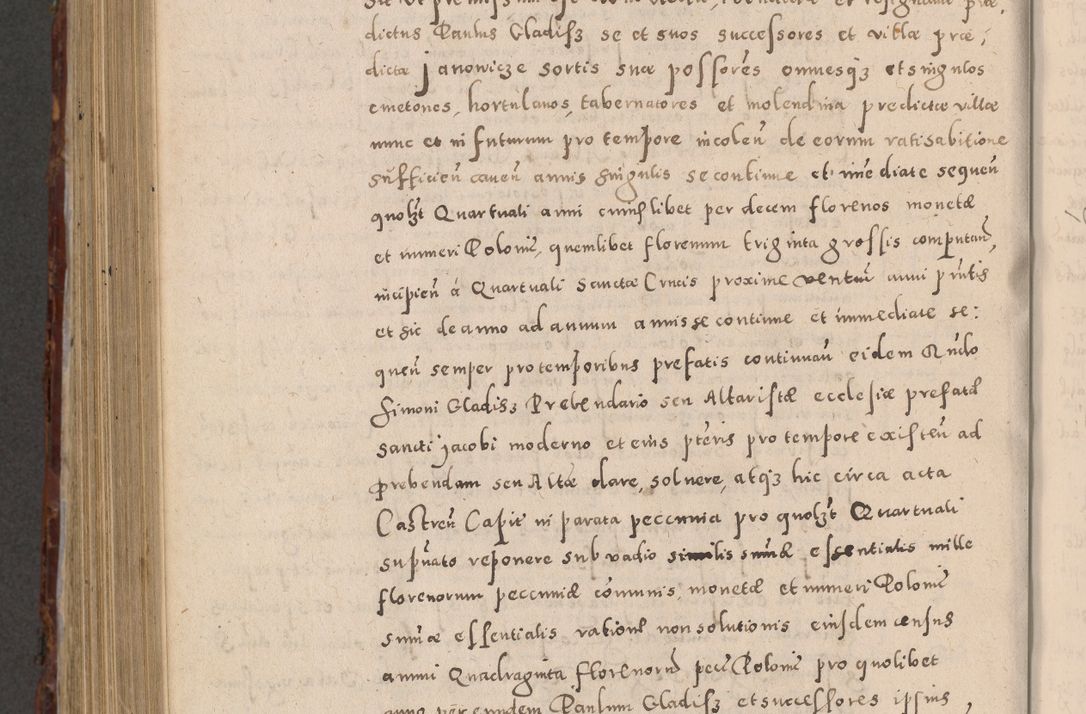 dictus Paulus Gladisz se et suos successores et villæ præ,
dictæ Janowicze sortis suæ possores omnesq3 et singulos
cmetones, hortulanos, tabernatores et molendina predictæ villæ
nunc et in futurum pro tempore incolen̄ de eorum ratihabitione
sufficien̄ caven̄ annis singulis se continue et imediate sequen̄
quolzt Quartuali anni cuiuslibet per decem florenos monetæ
et numeri Polonic̄, quemlibet florenum triginta grossis computan̄,
incipien̄ á Quartuali Sanctæ Crucis proxime ventur̄ anni prn̄tis
et sic de anno ad annum annis se continue et immediate se:
quen̄ semper pro temporibus prefatis continuan̄ eidem Rn̄do
Simoni Gladisz Prebendario seu Altaristæ ecclesiæ prefatæ
Sancti Jacobi moderno et eius ptēris pro tempore existen̄ ad
Prebendam seu Altæ dare, solvere, atq3 hic circa acta
Castren̄ Capit̄ in parata peccunia pro quolzt Quartuali
supn̄ato reponere sub vadio similis sum̄æ essentialis mille
florenorum peccuniæ com̄unis, monetæ et numeri Polonic̄
sum̄æ essentialis rationē non solutionis eiusdem census
annui Quadraginta florenorū pecc̄ Polonic̄ pro quolibet
anno per eundem Paulum Gladisz et successores ipsius,